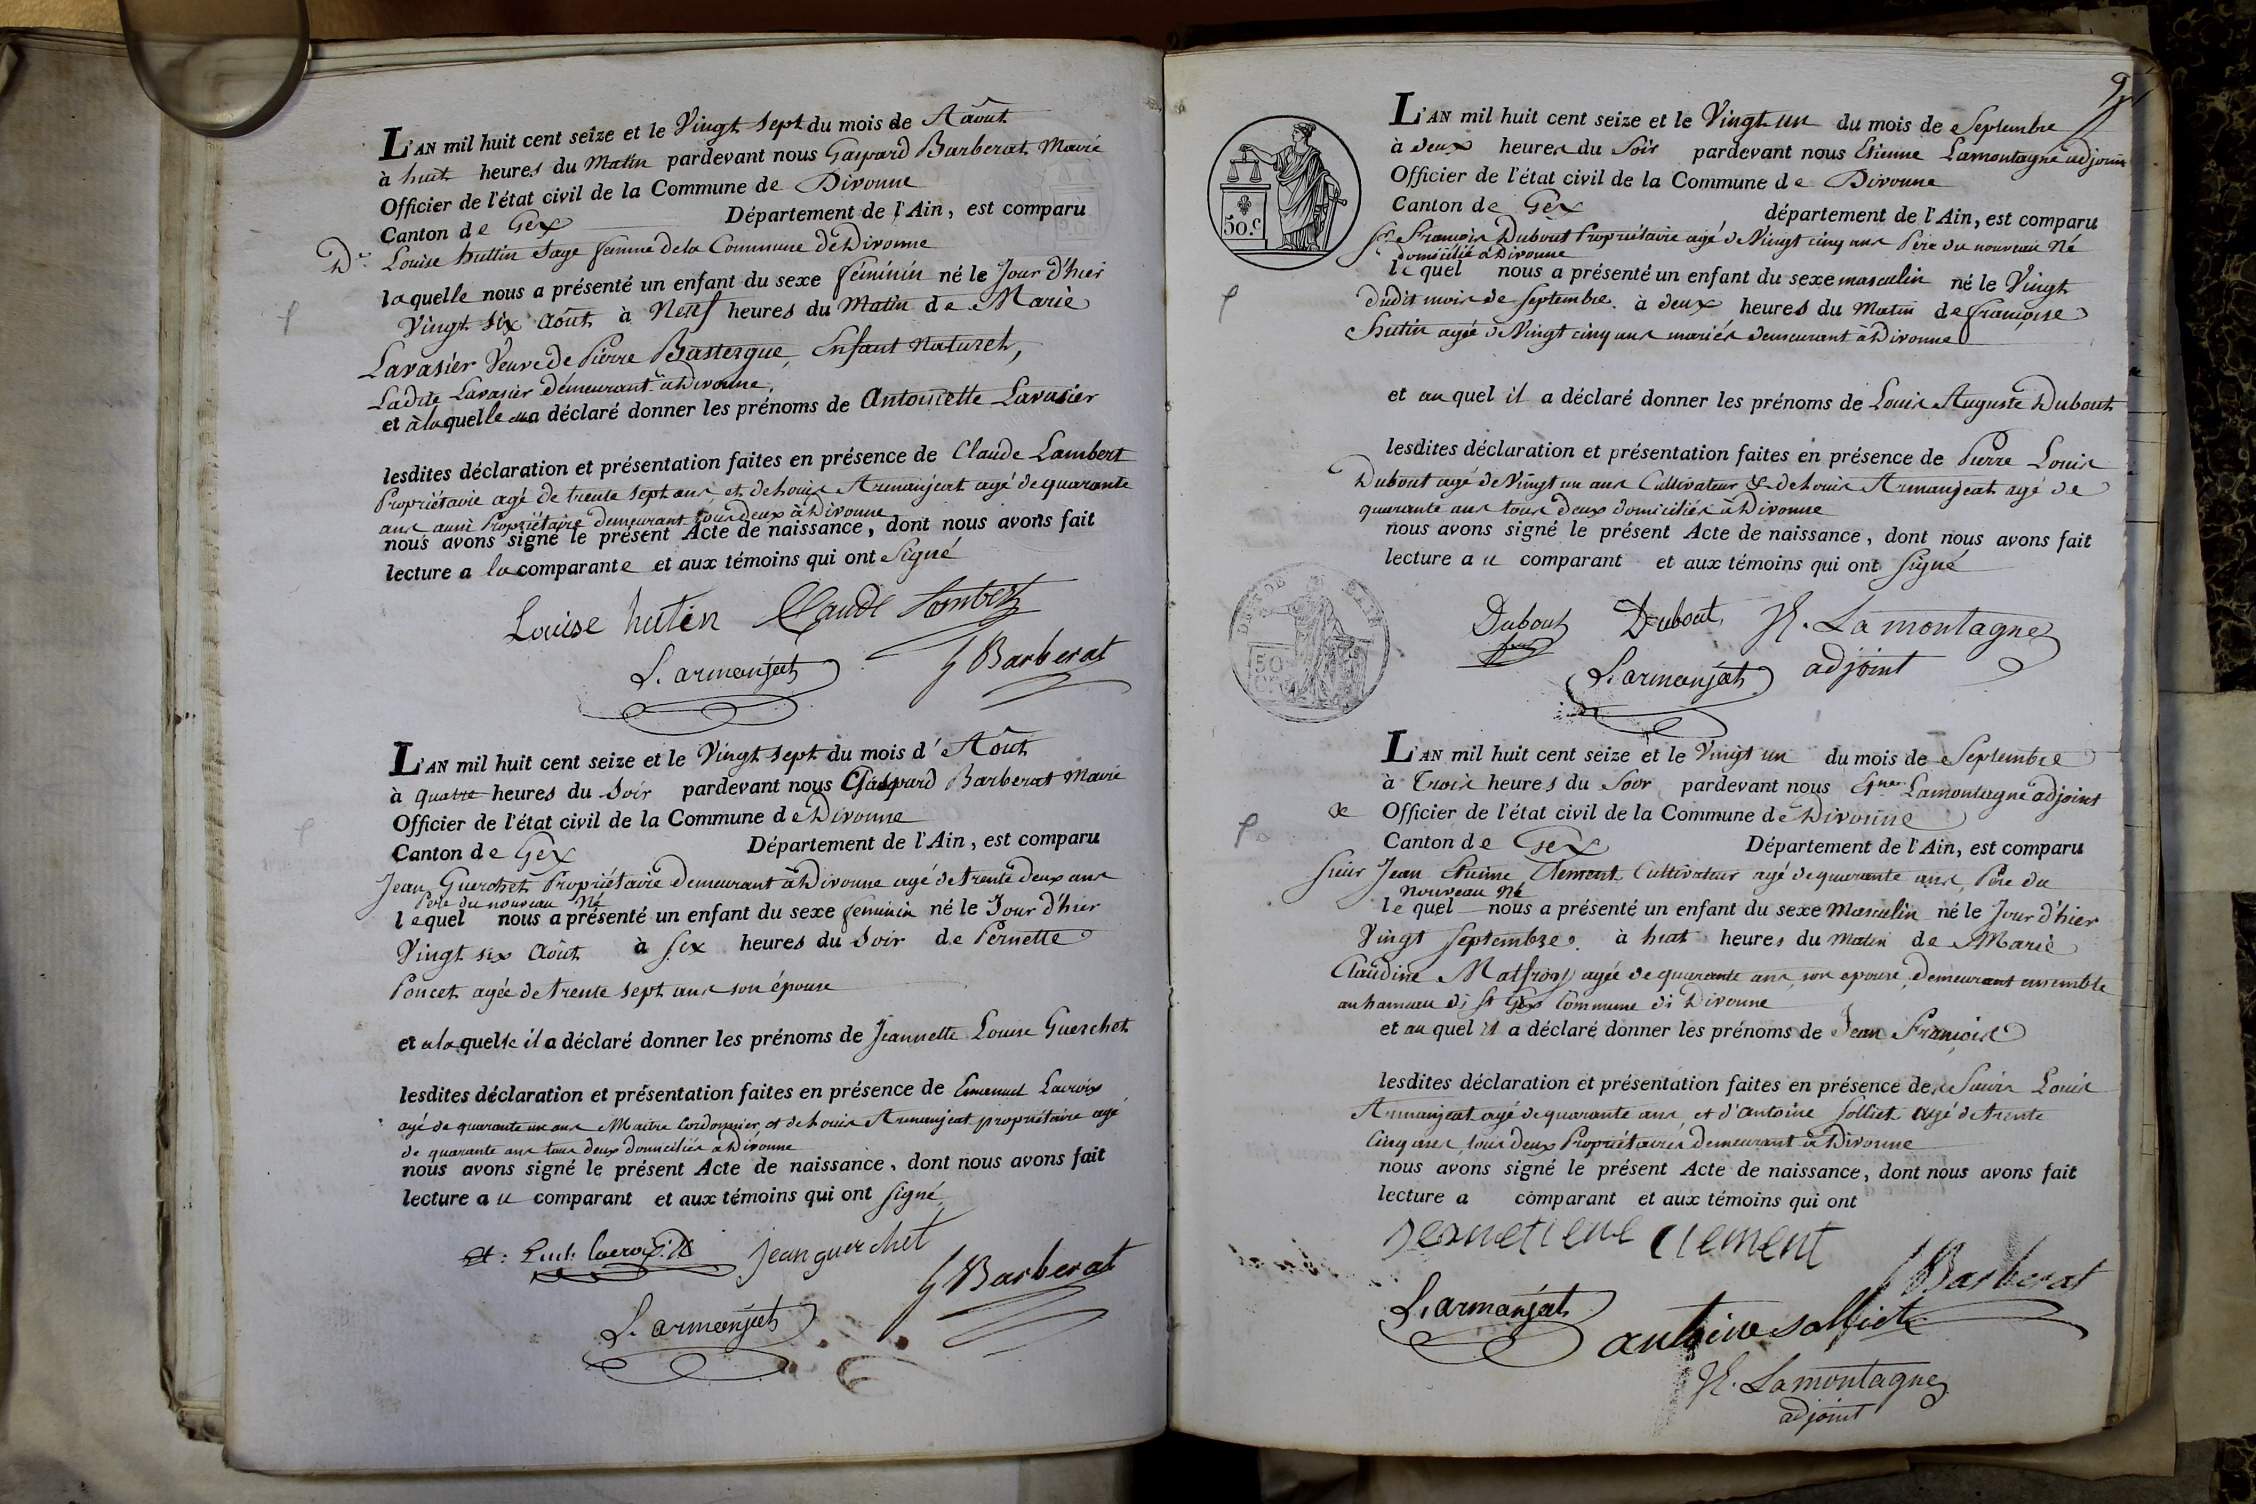 L'AN mil huit cent seize et le Vingt sept du mois de Août
à huit heures du Matin pardevant nous Gaspard Barberat Maire
Officier de l'état civil de la Commune de Divonne
Canton de Gex Département de l'Ain, est comparu
De Louise huttin Sage femme de la Commune de Divonne
laquelle nous a présenté un enfant du sexe féminin né le Jour d'hier
Vingt six Août à Neuf heures du Matin de Marie
Lavasier Veuve de Pierre Bastergue, Enfant Naturel,
Ladite Lavasier démeurant à Divonne,
et à laquelle a déclaré donner les prénoms de Antoinette Lavasier
lesdites déclaration et présentation faites en présence de Claude Lambert
Propriétaire agé de trente sept ans et de Louis Armanjeat agé de quarante
ans aussi Propriétaire demeurant tous deux à Divonne
nous avons signé le présent Acte de naissance, dont nous avons fait
lecture a la comparante et aux témoins qui ont Signé
Louise hutin Claude Lambert
L. armanjat G Barberat
L'AN mil huit cent seize et le Vingt sept du mois d' Août
à quatre heures du Soir pardevant nous Gaspard Barberat Maire
Officier de l'état civil de la Commune de Divonne
Canton de Gex Département de l'Ain, est comparu
Jean Guerchet Propriétaire demeurant à Divonne agé de trente deux ans
Père du nouveau Né
lequel nous a présenté un enfant du sexe féminin né le Jour d'hier
Vingt six Août à six heures du Soir de Pernette
Poncet agée de trente sept ans son épouse
et a laquelle il a déclaré donner les prénoms de Jeannette Louise Guerchet
lesdites déclaration et présentation faites en présence de Emanuel Lacroix
agé de quarante un ans Maitre Cordonnier et de Louis Armanjeat propriétaire agé
de quarante ans tous deux domiciliés à Divonne
nous avons signé le présent Acte de naissance, dont nous avons fait
lecture a u comparant et aux témoins qui ont signé
Lacroix jean guerchet
G Barberat
L. armanjat
L'AN mil huit cent seize et le Vingt un du mois de Septembre
à deux heures du Soir pardevant nous Etienne Lamontagne adjoint
Officier de l'état civil de la Commune de Divonne
Canton de Gex département de l'Ain, est comparu
Sr François Dubout Propriétaire agé de Vingt cinq ans Père du nouveau Né
domicilié à Divonne
lequel nous a présenté un enfant du sexe masculin né le Vingt
dudit mois de Septembre à deux heures du Matin de françoise
hutin agée de Vingt cinq ans mariés demeurant à Divonne
50.c
et au quel il a déclaré donner les prénoms de Louis Auguste Dubout
lesdites déclaration et présentation faites en présence de Pierre Louis
Dubout agé de Vingt un ans Cultivateur & de Louis Armanjeat agé de
quarante ans tous deux domiciliés à Divonne
nous avons signé le présent Acte de naissance, dont nous avons fait
lecture a u comparant et aux témoins qui ont signé
Dubout Dubout, Lamontagne
L. armanjat adjoint
L'AN mil huit cent seize et le Vingt un du mois de Septembre
à Trois heures du Soir pardevant nous Lamontagne adjoint
Officier de l'état civil de la Commune de Divonne
Canton de Gex Département de l'Ain, est comparu
Sieur Jean Etiene Clement Cultivateur agé de quarante ans, Père du
nouveau Né
le quel nous a présenté un enfant du sexe Masculin né le Jour d'hier
Vingt Septembre à huit heures du Matin de Marie
Claudine agée de quarante ans, son epouse, demeurant ensemble
au hameau de St Gex Commune de Divonne
et au quel il a déclaré donner les prénoms de Jean François
lesdites déclaration et présentation faites en présence de Louis
Armanjeat agé de quarante ans et d'antoine Solliet agé de trente
Cinq ans, tous deux Propriétaires demeurant à Divonne
nous avons signé le présent Acte de naissance, dont nous avons fait
lecture a comparant et aux témoins qui ont
clement
G Barberat
L. armanjat
antoine solliet
Lamontagne
adjoint